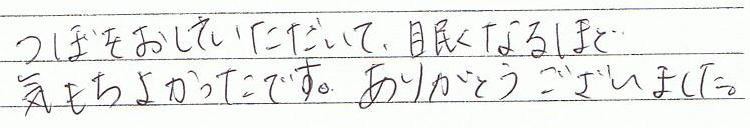 つぼをおしていただいて、眠くなるほど
気もちよかったです。ありがとうございました。